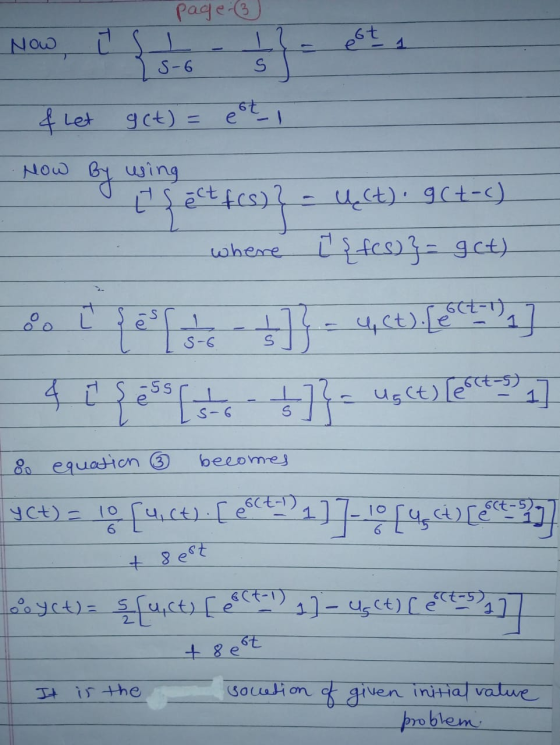 page-③
Now, L⁻¹ { 1/(s-6) - 1/s } = e^{6t} - 1
& Let g(t) = e^{6t} - 1
Now By using
L⁻¹ { e^{-ct} f(s) } = u_c(t) · g(t-c)
where L⁻¹ {f(s)} = g(t)
∴ L⁻¹ { e^{-s} [ 1/(s-6) - 1/s ] } = u₁(t) · [e^{6(t-1)} - 1]
& L⁻¹ { e^{-5s} [ 1/(s-6) - 1/s ] } = u₅(t) [e^{6(t-5)} - 1]
∴ equation ③ becomes
y(t) = 10/6 [u₁(t) · [e^{6(t-1)} - 1]] - 10/6 [u₅(t) [e^{6(t-5)} - 1]]
+ 8e^{6t}
∴ y(t) = 5/2 [u₁(t) [e^{6(t-1)} - 1] - u₅(t) [e^{6(t-5)} - 1]]
+ 8e^{6t}
It is the solution of given initial value
problem.